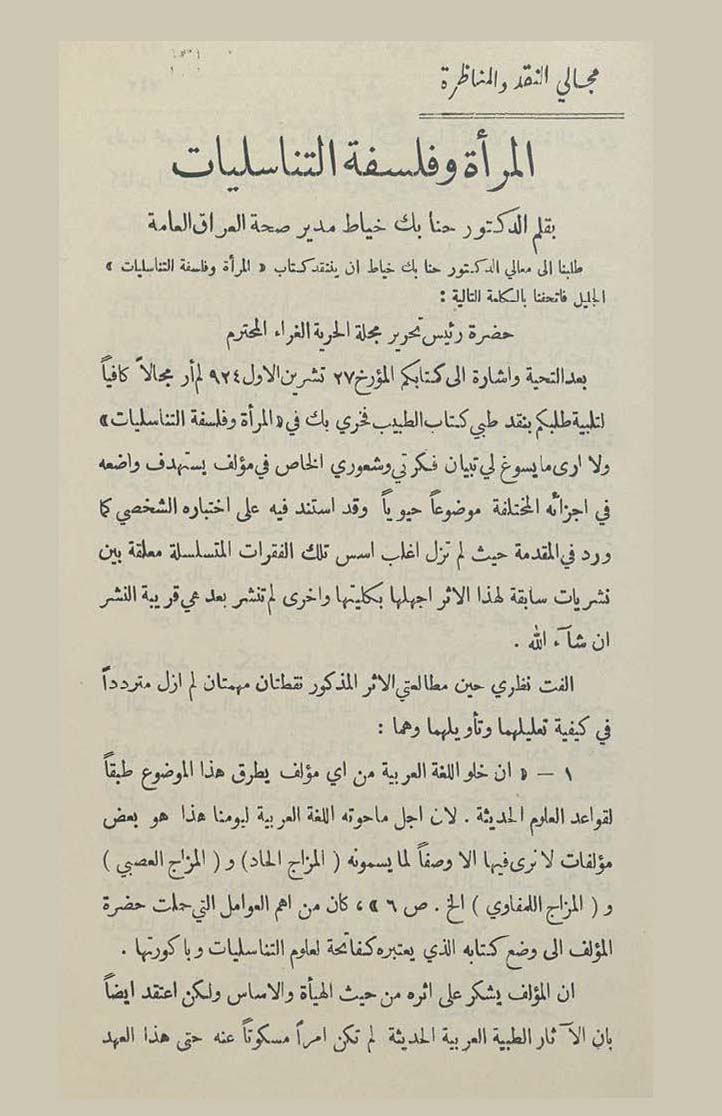 مجالي النقد والمناظرة
المرأة وفلسفة التناسليات
بقلم الدكتور حنا بك خياط مدير صحة العراق العامة
طلبنا الى معالي الدكتور حنا بك خياط ان ينتقد كتاب « المرأة وفلسفة التناسليات »
الجليل فاتحفنا بالكلمة التالية :
حضرة رئيس تحرير مجلة الحرية الغراء المحترم
بعد التحية واشارة الى كتابكم المؤرخ ٢٧ تشرين الاول ٩٢٤ لم أر مجالاً كافياً
لتلبية طلبكم بنقد طبي كتاب الطبيب فخري بك في « المرأة وفلسفة التناسليات »
ولا ارى ما يسوغ لي تبيان فكرتي وشعوري الخاص في مؤلف يستهدف واضعه
في اجزائه المختلفة موضوعاً حيوياً وقد استند فيه على اختباره الشخصي كما
ورد في المقدمة حيث لم تزل اغلب اسس تلك الفقرات المتسلسلة معلقة بين
نشريات سابقة لهذا الاثر اجهلها بكليتها واخرى لم تنشر بعد هي قريبة النشر
ان شآء الله .
الفت نظري حين مطالعتي الاثر المذكور نقطتان مهمتان لم ازل متردداً
في كيفية تعليلهما وتأويلهما وهما :
١ — « ان خلو اللغة العربية من اي مؤلف يطرق هذا الموضوع طبقاً
لقواعد العلوم الحديثة . لان اجل ماحوته اللغة العربية ليومنا هذا هو بعض
مؤلفات لا نرى فيها الا وصفاً لما يسمونه ( المزاج الحاد ) و ( المزاج العصبي )
و ( المزاج اللمفاوي ) الخ . ص ٦ » ، كان من اهم العوامل التي حملت حضرة
المؤلف الى وضع كتابه الذي يعتبره كفاتحة لعلوم التناسليات وباكورتها .
ان المؤلف يشكر على اثره من حيث الهيأة والاساس ولكن اعتقد ايضاً
بان الآثار الطبية العربية الحديثة لم تكن امراً مسكوتاً عنه حتى هذا العهد